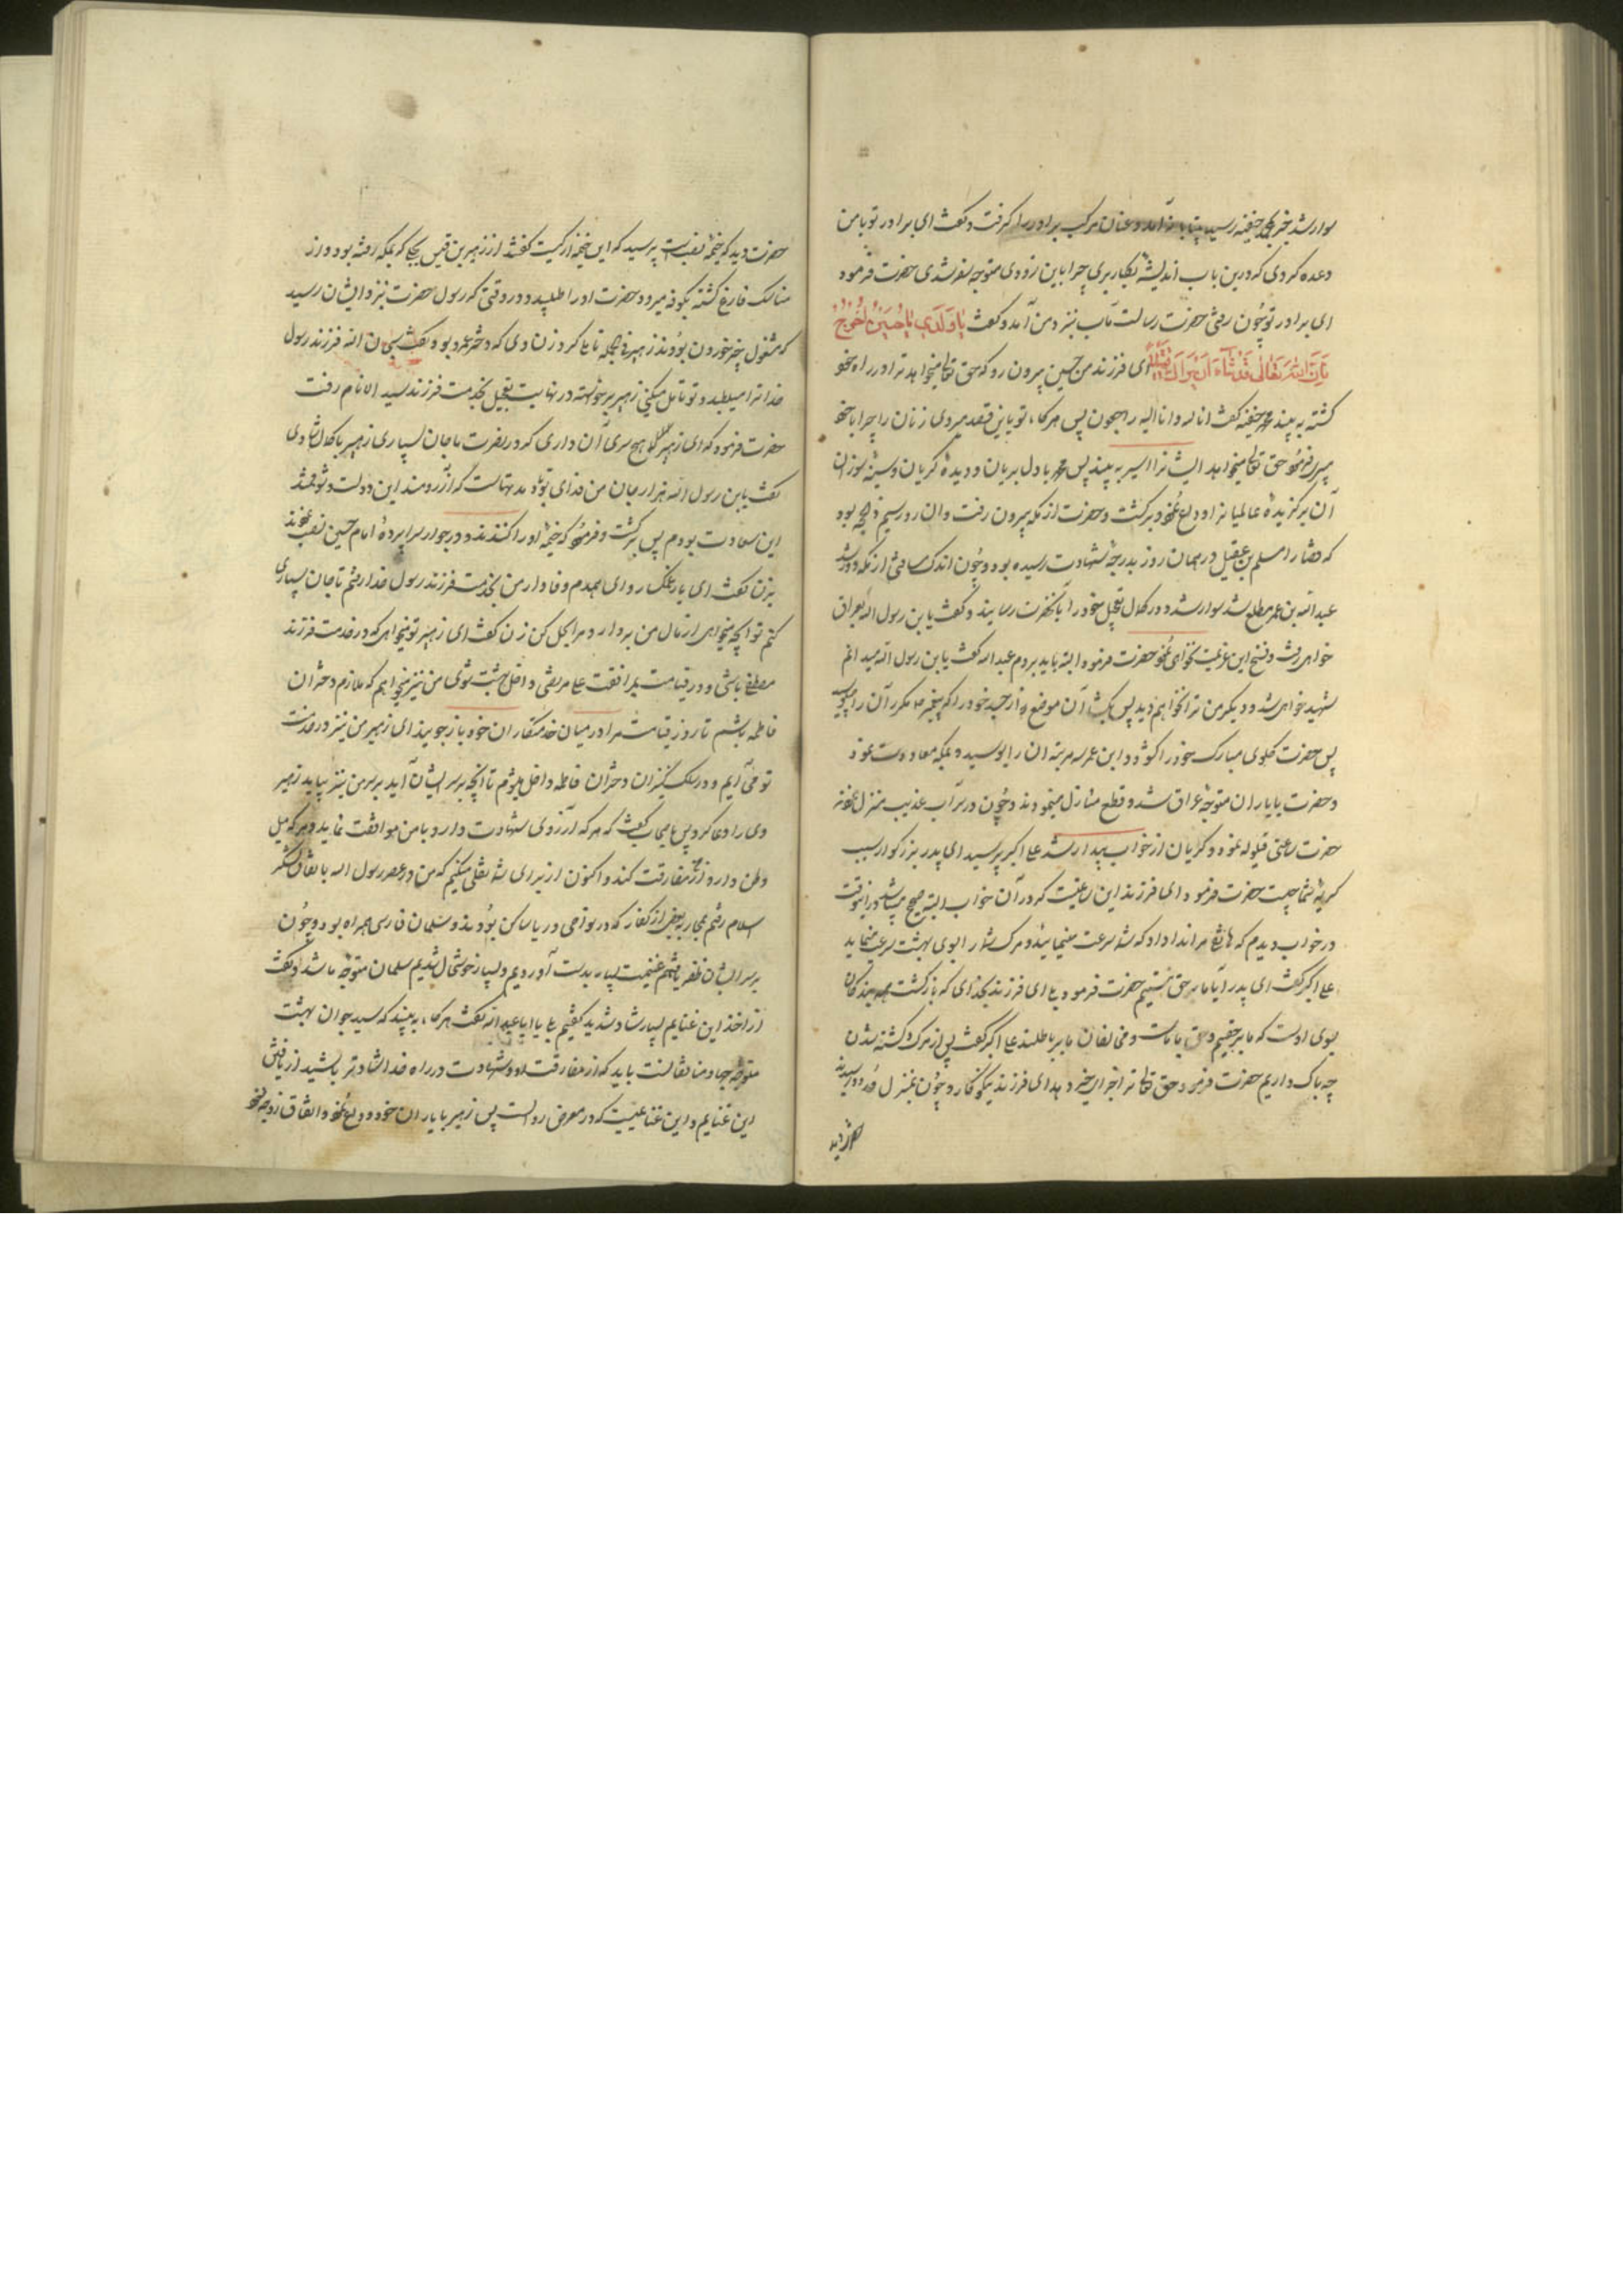 سوار شد خبر بمحمد حنفیه رسید بیتابانه آمد و عنان مرکب برادر را کرفت و کفت ای برادر تو با من
وعده کردی که درین باب اندیشه بکار بری چرا باین زودی متوجه سفر شدی حضرت فرمود
ای برادر تو چون رفتی حضرت رسالت مآب بنزد من آمد و کفت یا وَلَدی یا حُسَیْنُ اُخْرُجْ
فَاِنَّ اللّٰهَ تَعٰالیٰ قَدْ شٰاءَ اَنْ یَرٰاکَ قَتیلاً ای فرزند من حسین بیرون رو که حق تعالی میخواهد ترا در راه خود
کشته به بیند محمد حنفیه کفت انا لله و انا الیه راجعون پس هرکاه تو باین قصد میروی زنان را چرا با خود
میبری فرمود حق تعالی میخواهد ایشانرا اسیر به بیند پس محمد با دل بریان و دیدهٔ کریان و سینهٔ سوزان
آن برکزیدهٔ عالمیانرا وداع نمود و برکشت و حضرت از مکه بیرون رفت و ان روز سیم ذیحجه بود
که قضا را مسلم بن عقیل در همان روز بدرجهٔ شهادت رسیده بود و چون اندک مسافتی از مکه دور شد
عبد الله بن عمر مطلع شد سوار شد و در کمال تعجیل خود را بآنحضرت رسانید و کفت یابن رسول الله بعراق
خواهی رفت و فسخ این عزیمت نخواهی نمود حضرت فرمود البته باید بروم عبد الله کفت یابن رسول الله میدانم
شهید خواهی شد و دیکر من ترا نخواهم دید پس بکشا آن موضع از جسد خود را که پیغمبر مکرر آن را میبوسید
پس حضرت کلوی مبارک خود را کشود و ابن عمر سه مرتبه ان را بوسید و بمکه معاودت نمود
و حضرت با یاران متوجه عراق شد و قطع منازل مینمودند و چون در سر آب عذیب منزل نمودند
حضرت ساعتی قیلوله نمود و کریان از خواب بیدار شد علی اکبر پرسید ای پدر بزرکوار سبب
کریهٔ شما چیست حضرت فرمود ای فرزند این ساعتیست که در آن خواب البته صحیح میباشد درینوقت
در خواب دیدم که هاتفی مرا ندا داد که شما سرعت مینمائید و مرک شما را بسوی بهشت سرعت مینماید
علی اکبر کفت ای پدر آیا ما بر حق نیستیم حضرت فرمود بلی ای فرزند بخدای که بازکشت همه بندکان
بسوی اوست که ما بر حقیم و حق با ماست و مخالفان ما بر باطلند علی اکبر کفت پس از مرک و کشته شدن
چه باک داریم حضرت فرمود حق تعالی ترا جزای خیر دهد ای فرزند نیکوکار و چون بمنزل زرود رسیدند
حضرت دید
حضرت دید که خیمهٔ نصب است پرسید که این خیمه از کیست کفتند از زهیر بن قیس بجلی که بمکه رفته بود و از
مناسک فارغ کشته بکوفه میرود حضرت او را طلبید و در وقتی که رسول حضرت بنزد ایشان رسید
که مشغول چیز خوردن بودند زهیر فی الجمله تاملی کرد زن وی که دختر عمرو بود کفت سبحان الله فرزند رسول
خدا ترا میطلبد و تو تامل میکنی زهیر برخواسته در نهایت تعجیل بخدمت فرزند سید الانام رفت
حضرت فرمود که ای زهیر هیچ سری آن داری که در نصرت ما جان سپاری زهیر با کمال شادی
کفت یابن رسول الله هزار جان من فدای تو باد مدتهاست که آرزومند این دولت و مشتاق
این سعادت بودم پس برکشت و فرمود که خیمهٔ او را کندند و در جوار سراپردهٔ امام حسین نصب نمودند
بزن کفت ای یار غمکسار و ای همدم وفادار من بخدمت فرزند رسول خدا رفتم تا جان سپاری
کنم تو آنچه میخواهی از مال من بردار و مرا بحل کن زن کفت ای زهیر تو میخواهی که در خدمت فرزند
مصطفی باشی و در قیامت بمرافقت علی مرتضی داخل جنت شوی من نیز میخواهم که ملازم دختران
فاطمه باشم تا روز قیامت مرا در میان خدمتکاران خود باز جویند ای زهیر من نیز در خدمت
تو می آیم و در سلک کنیزان دختران فاطمه داخل میشوم تا آنچه بر سر ایشان آید بر سر من نیز بیاید زهیر
وی را دعا کرد پس باصحاب کفت که هر که آرزوی شهادت دارد با من موافقت نماید و هر که میل
وطن دارد از من مفارقت کند و اکنون از برای شما نقلی میکنیم که من در عصر رسول الله باتفاق لشکر
اسلام رفتم بمحاربهٔ بعضی از کفار که در نواحی دریا ساکن بودند و سلمان فارسی همراه بود و چون
بر سر ایشان ظفر یافتیم غنیمت بسیار بدست آوردیم و بسیار خوشحال شدیم سلمان متوجه ما شد و کفت
از اخذ این غنایم بسیار شاد شدید کفتیم بلی یا ابا عبد الله کفت هرکاه به بیند که سید جوانان بهشت
متوجه جهاد منافقانست باید که از مفارقت و شهادت در راه خدا شادتر باشید از یافتن
این غنایم و این غنائمیست که در معرض زوالست پس زهیر با یاران خود وداع نمود و اتفاق زوجهٔ خود